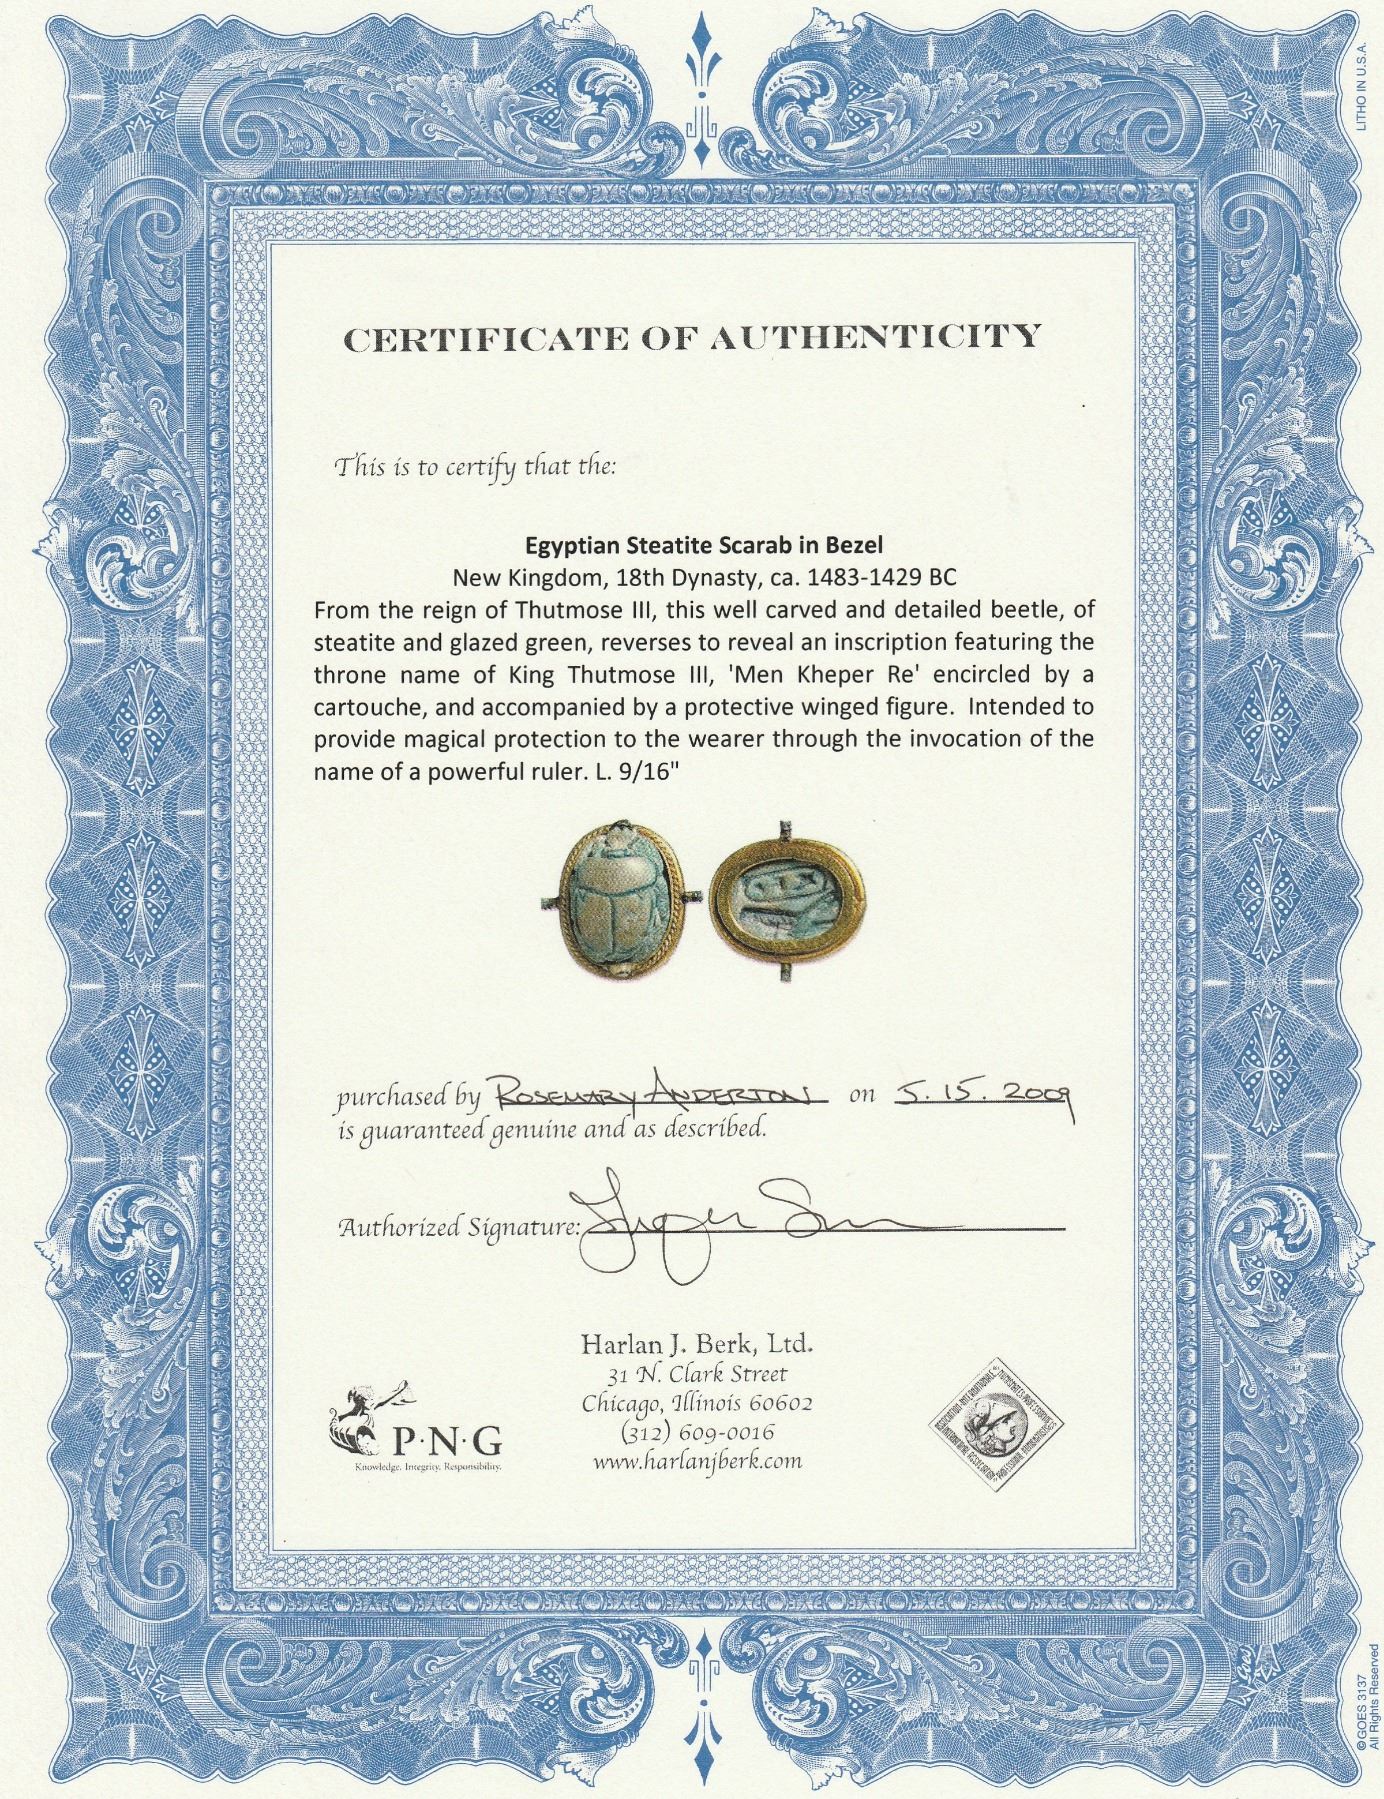 LITHO IN U.S.A.
CERTIFICATE OF AUTHENTICITY
This is to certify that the:
Egyptian Steatite Scarab in Bezel
New Kingdom, 18th Dynasty, ca. 1483-1429 BC
From the reign of Thutmose III, this well carved and detailed beetle, of
steatite and glazed green, reverses to reveal an inscription featuring the
throne name of King Thutmose III, 'Men Kheper Re' encircled by a
cartouche, and accompanied by a protective winged figure. Intended to
provide magical protection to the wearer through the invocation of the
name of a powerful ruler. L. 9/16"
purchased by ROSEMARY ANDERTON on 5.15.2009
is guaranteed genuine and as described.
Authorized Signature:
Harlan J. Berk, Ltd.
31 N. Clark Street
Chicago, Illinois 60602
(312) 609-0016
www.harlanjberk.com
P·N·G
Knowledge. Integrity. Responsibility.
©GOES 3137
All Rights Reserved